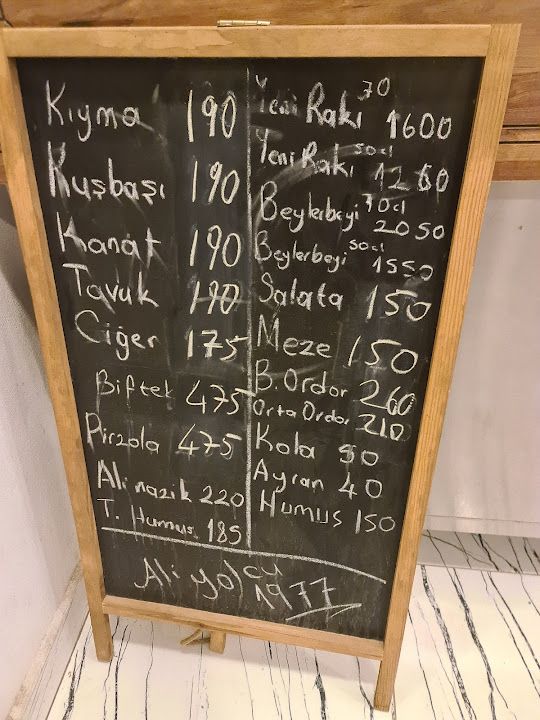 Kıyma 190
Kuşbaşı 190
Kanat 190
Tavuk 190
Ciğer 175
Biftek 475
Pirzola 475
Ali nazik 220
T. Humus 185
Yeni Rakı 70 1600
Yeni Rakı 50cl 1260
Beylerbeyi 70cl 2050
Beylerbeyi 50cl 1550
Salata 150
Meze 150
B. Ordor 260
Orta Ordor 210
Kola 50
Ayran 40
Humus 150
Ali yolcu
1977